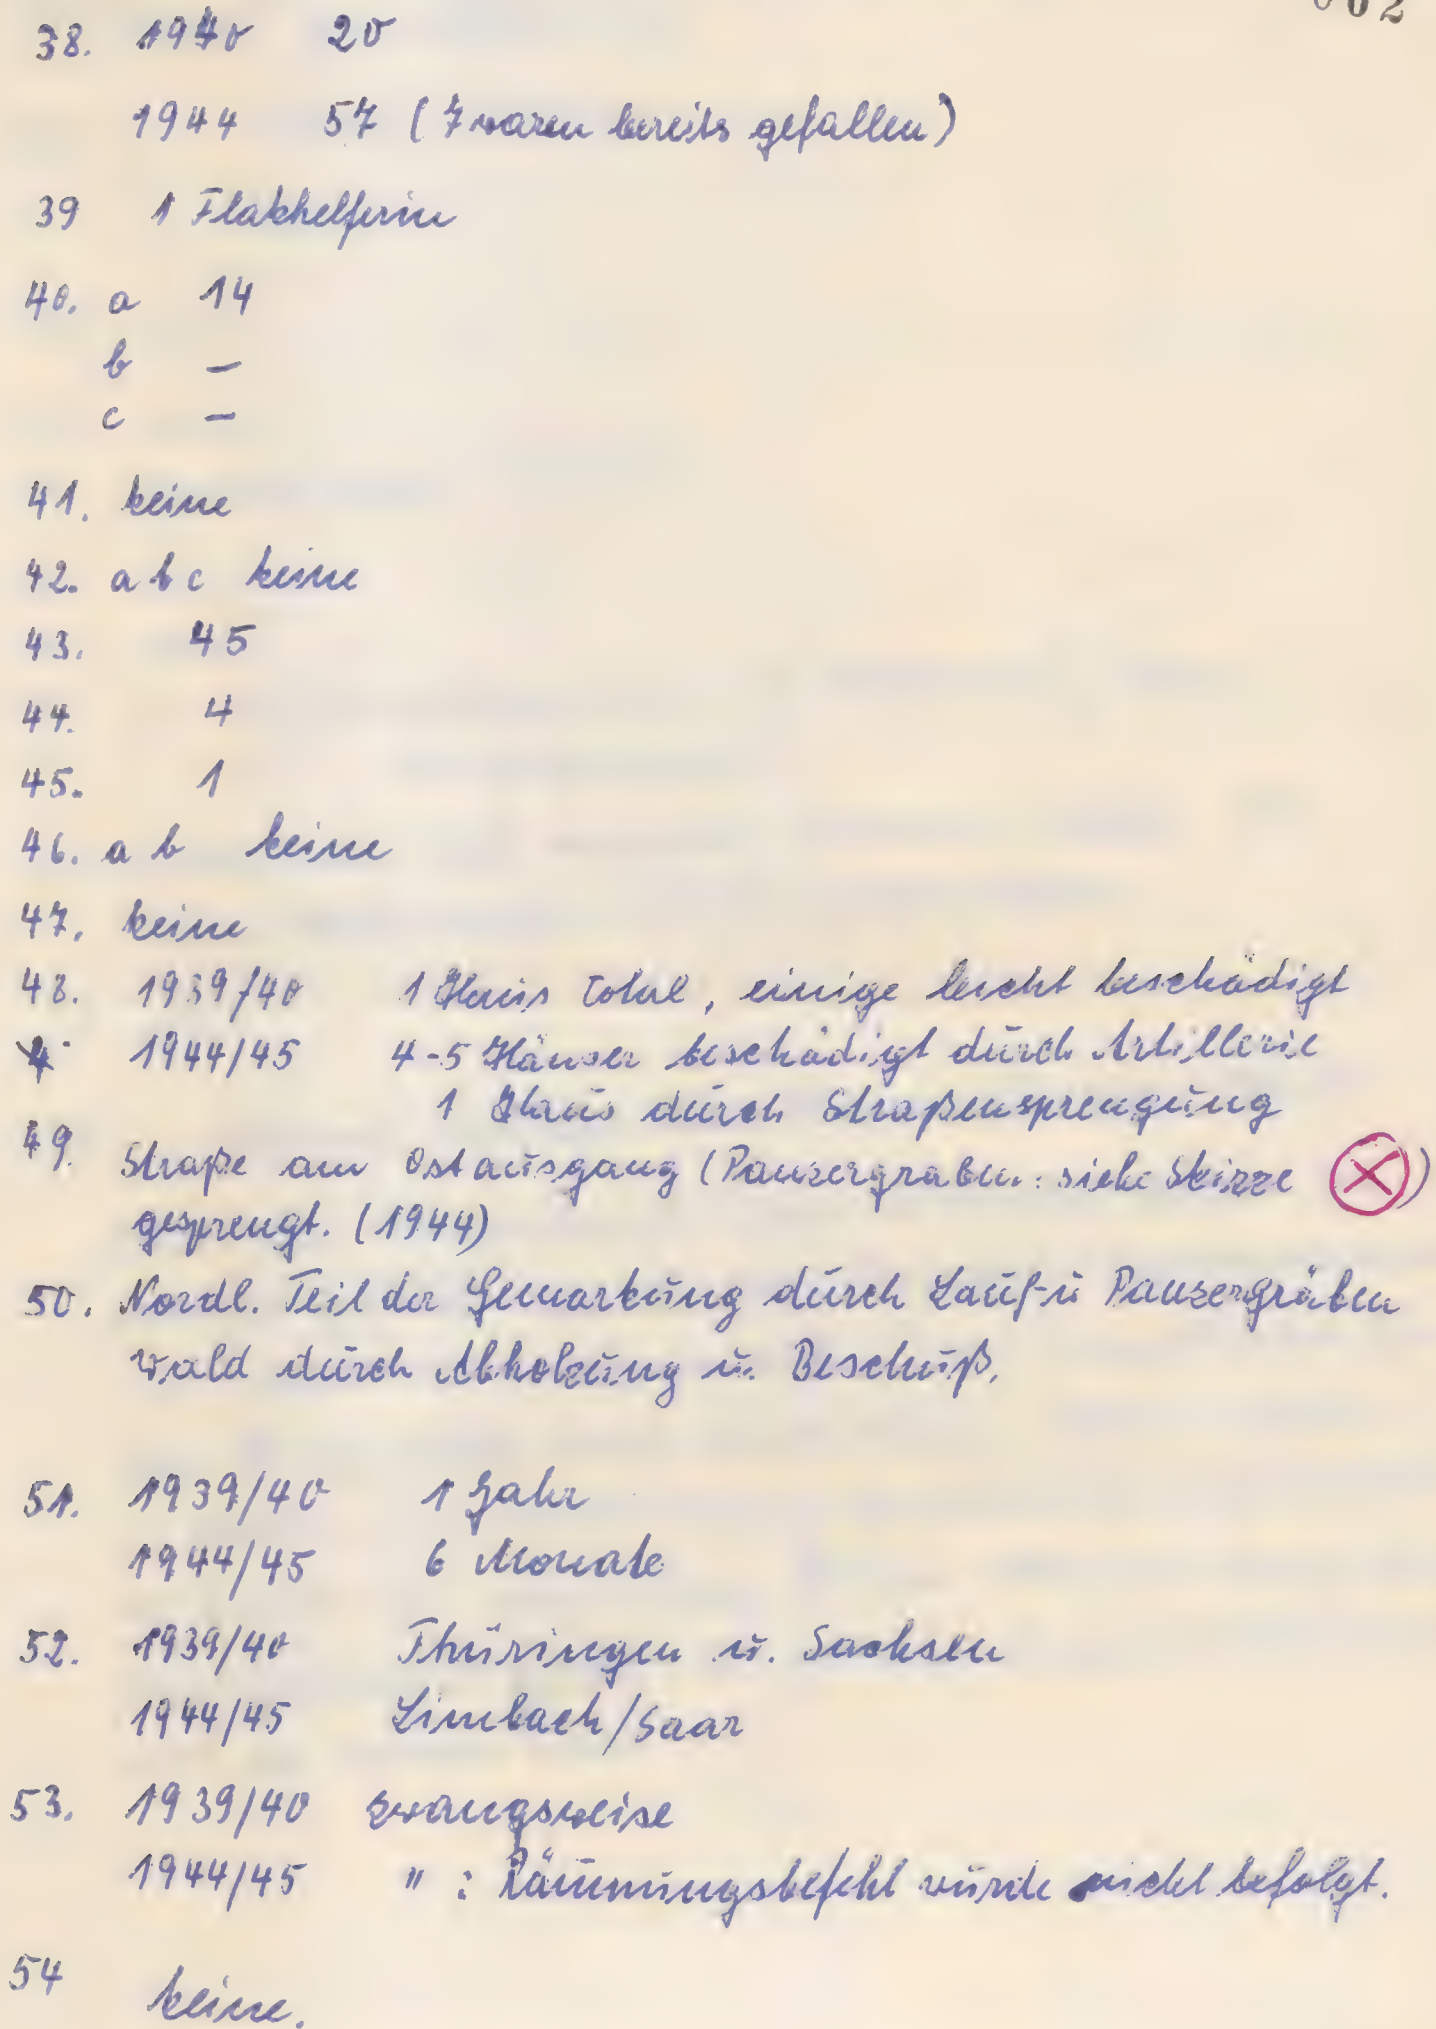 002
38. 1940 20
1944 57 (7 waren bereits gefallen)
39 1 Flakhelferin
40. a 14
b –
c –
41. keine
42. a b c keine
43. 45
44. 4
45. 1
46. a b keine
47. keine
48. 1939/40 1 Haus total, einige leicht beschädigt
1944/45 4-5 Häuser beschädigt durch Artillerie
1 Haus durch Straßensprengung
49. Straße am Ostausgang (Panzergraben: siehe Skizze ⊗)
gesprengt. (1944)
50. Nordl. Teil der Gemarkung durch Lauf- u Panzergräben
Wald durch Abholzung u. Beschuß.
51. 1939/40 1 Jahr
1944/45 6 Monate
52. 1939/40 Thüringen u. Sachsen
1944/45 Limbach/Saar
53. 1939/40 zwangsweise
1944/45 " : Räumungsbefehl wurde nicht befolgt.
54 keine.